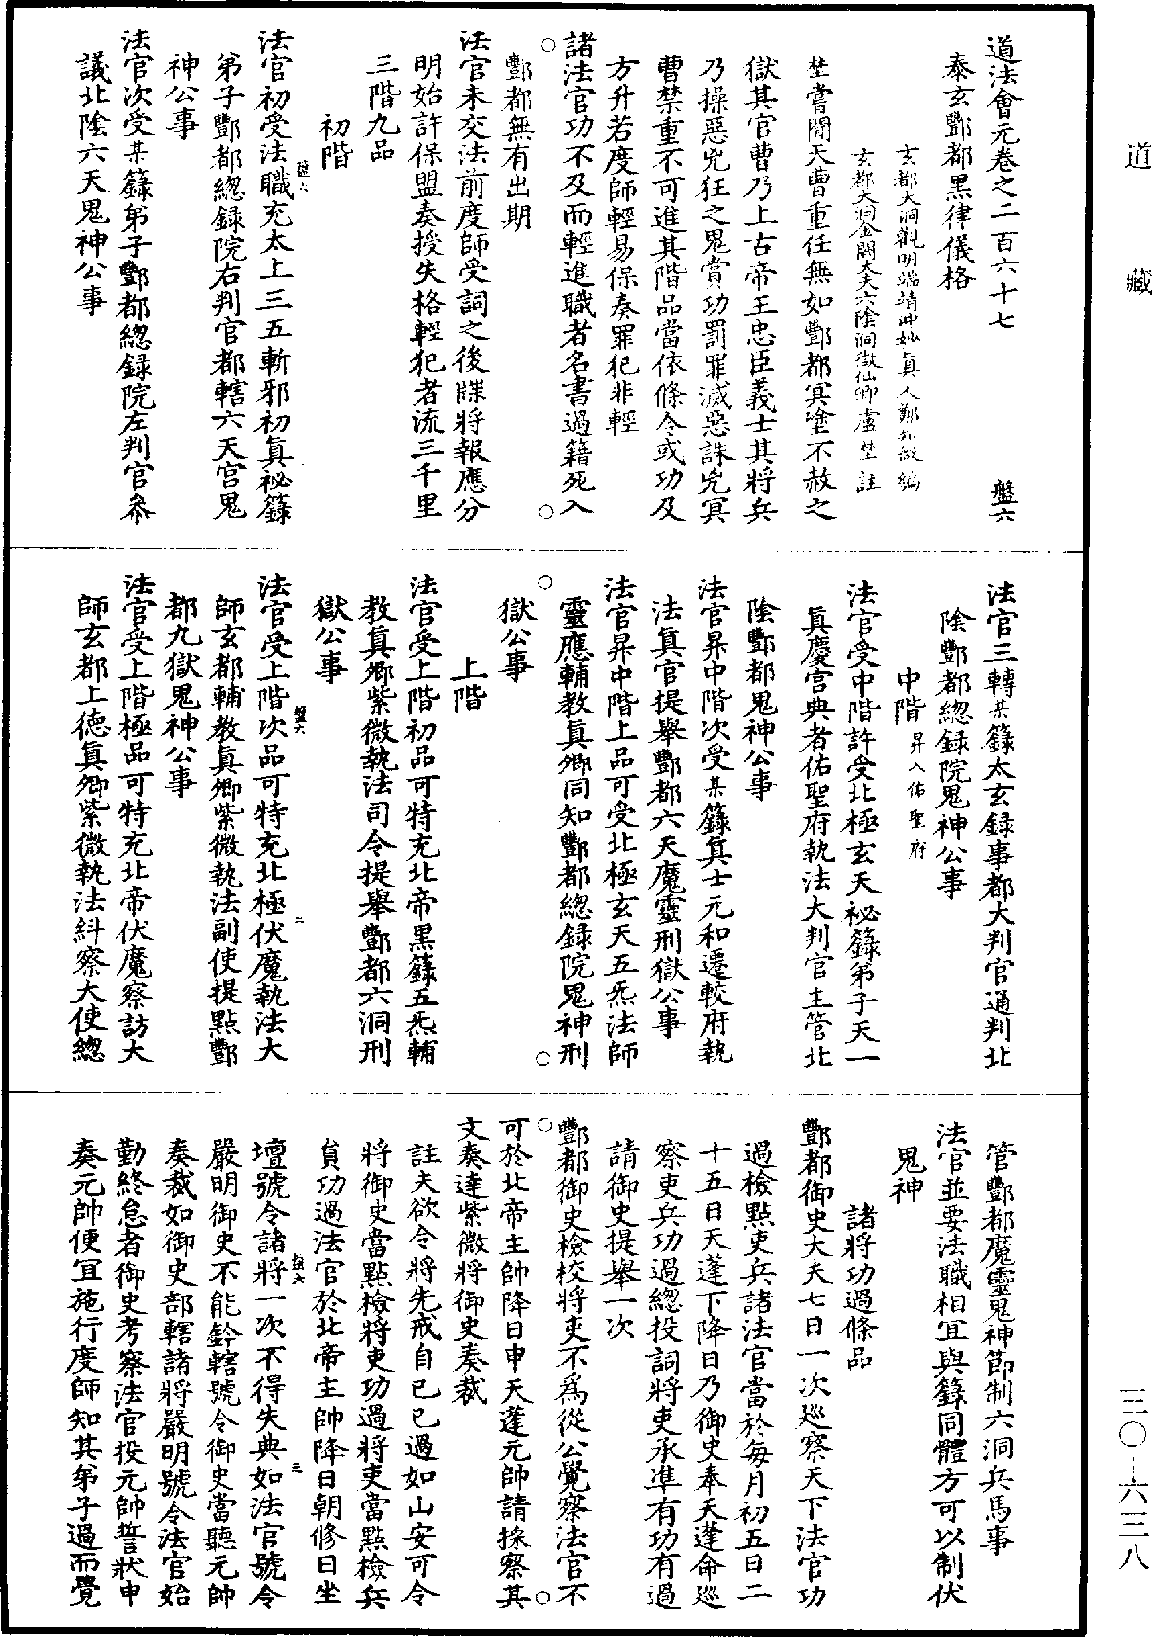 道藏
三〇—六三八
道法會元卷之二百六十七
盤六
泰玄酆都黑律儀格
玄都大洞觀明端靖沖妙真人鄭知微編
玄都大洞金闕大夫六陰洞微仙卿盧埜註
埜嘗聞天曹重任無如酆都冥塗不赦之
獄其官曹乃上古帝王忠臣義士其將兵
乃操惡兇狂之鬼賞功罰罪滅惡誅兇冥
曹禁重不可進其階品當依條令或功及
方升若度師輕易保奏罪犯非輕
諸法官功不及而輕進職者名書過籍死入
酆都無有出期
法官未交法前度師受詞之後牒將報應分
明始許保盟奏授失格輕犯者流三千里
三階九品
初階
法官初受法職充太上三五斬邪初真祕籙
弟子酆都總錄院右判官都轄六天宮鬼
神公事
法官次受某籙弟子酆都總錄院左判官叅
議北陰六天鬼神公事
法官三轉某籙太玄錄事都大判官通判北
陰酆都總錄院鬼神公事
中階昇入佑聖府
法官受中階許受北極玄天祕籙弟子天一
真慶宮典者佑聖府執法大判官主管北
陰酆都鬼神公事
法官昇中階次受某籙真士元和遷較府執
法真官提舉酆都六天魔靈刑獄公事
法官昇中階上品可受北極玄天五炁法師
靈應輔教真卿同知酆都總錄院鬼神刑
獄公事
上階
法官受上階初品可特充北帝黑籙五炁輔
教真卿紫微執法司令提舉酆都六洞刑
獄公事
法官受上階次品可特充北極伏魔執法大
師玄都輔教真卿紫微執法副使提點酆
都九獄鬼神公事
法官受上階極品可特充北帝伏魔察訪大
師玄都上德真卿紫微執法糾察大使總
管酆都魔靈鬼神節制六洞兵馬事
法官並要法職相宜與籙同體方可以制伏
鬼神
諸將功過條品
酆都御史大夫七日一次巡察天下法官功
過檢點吏兵諸法官當於每月初五日二
十五日天蓬下降日乃御史奉天蓬命巡
察吏兵功過總投詞將吏承凖有功有過
請御史提舉一次
酆都御史檢校將吏不為從公覺察法官不
可於北帝主帥降日申天蓬元帥請採察其
文奏達紫微將御史奏裁
註夫欲令將先戒自己己過如山安可令
將御史當點檢將吏功過將吏當點檢兵
負功過法官於北帝主帥降日朝修日坐
壇號令諸將一次不得失典如法官號令
嚴明御史不能鈐轄號令御史當聽元帥
奏裁如御史部轄諸將嚴明號令法官始
勤終怠者御史考察法官投元帥誓狀申
奏元帥便宜施行度師知其弟子過而覺